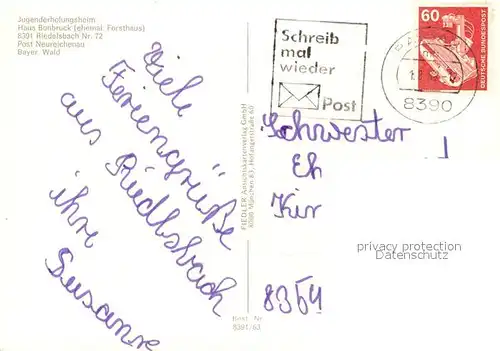 Jugenderholungsheim
Haus Bonbruck (ehemal. Forsthaus)
8391 Riedelsbach Nr. 72
Post Neureichenau
Bayer. Wald
Viele
Feriengrüße
aus
Riedlsbach
ihre
Susanne
FIEDLER Ansichtskartenverlag GmbH
8000 München 83, Hofangerstraße 60
Best. Nr.
8391/63
Schreib
mal
wieder
Post
8390
60
DEUTSCHE BUNDESPOST
Schwester
Eh
Kir
8354
privacy protection
Datenschutz